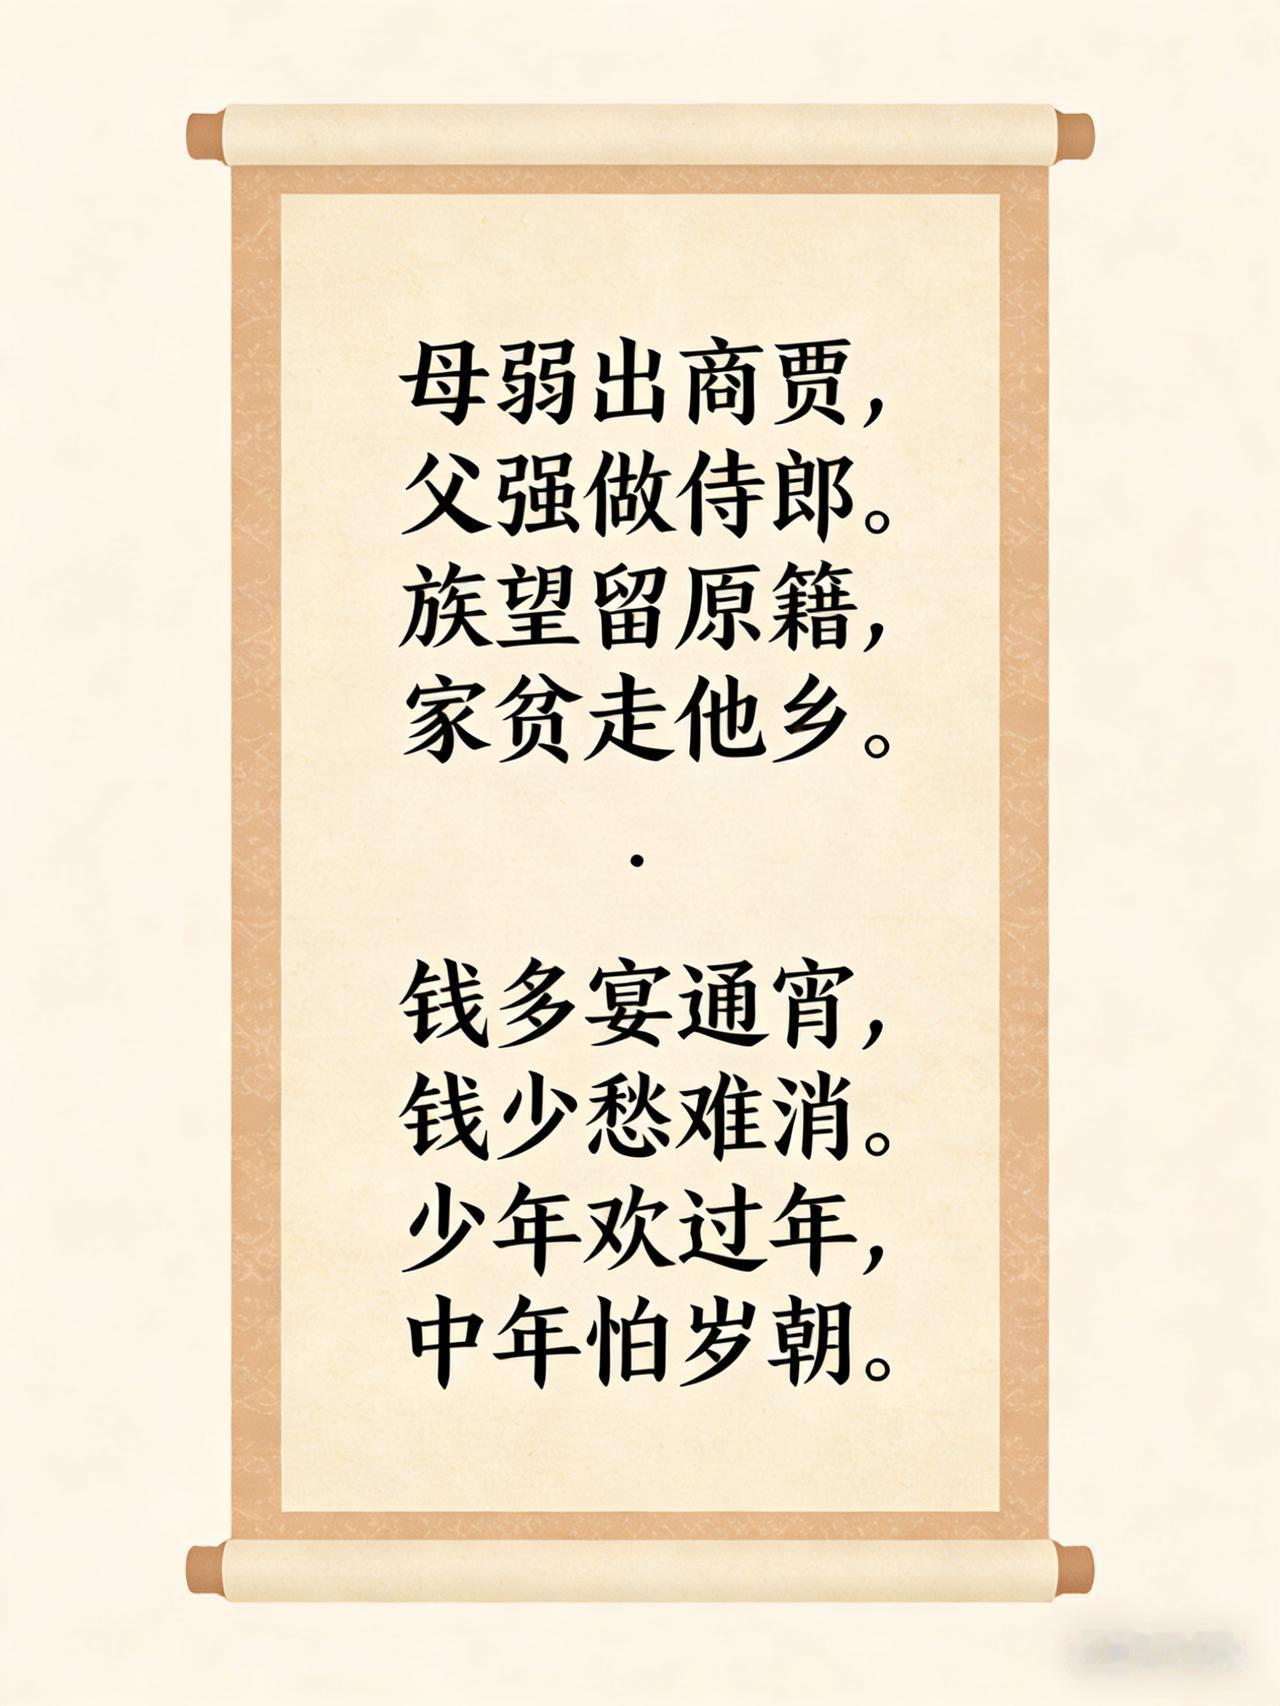 母弱出商贾，
父强做侍郎。
族望留原籍，
家贫走他乡。
·
钱多宴通宵，
钱少愁难消。
少年欢过年，
中年怕岁朝。